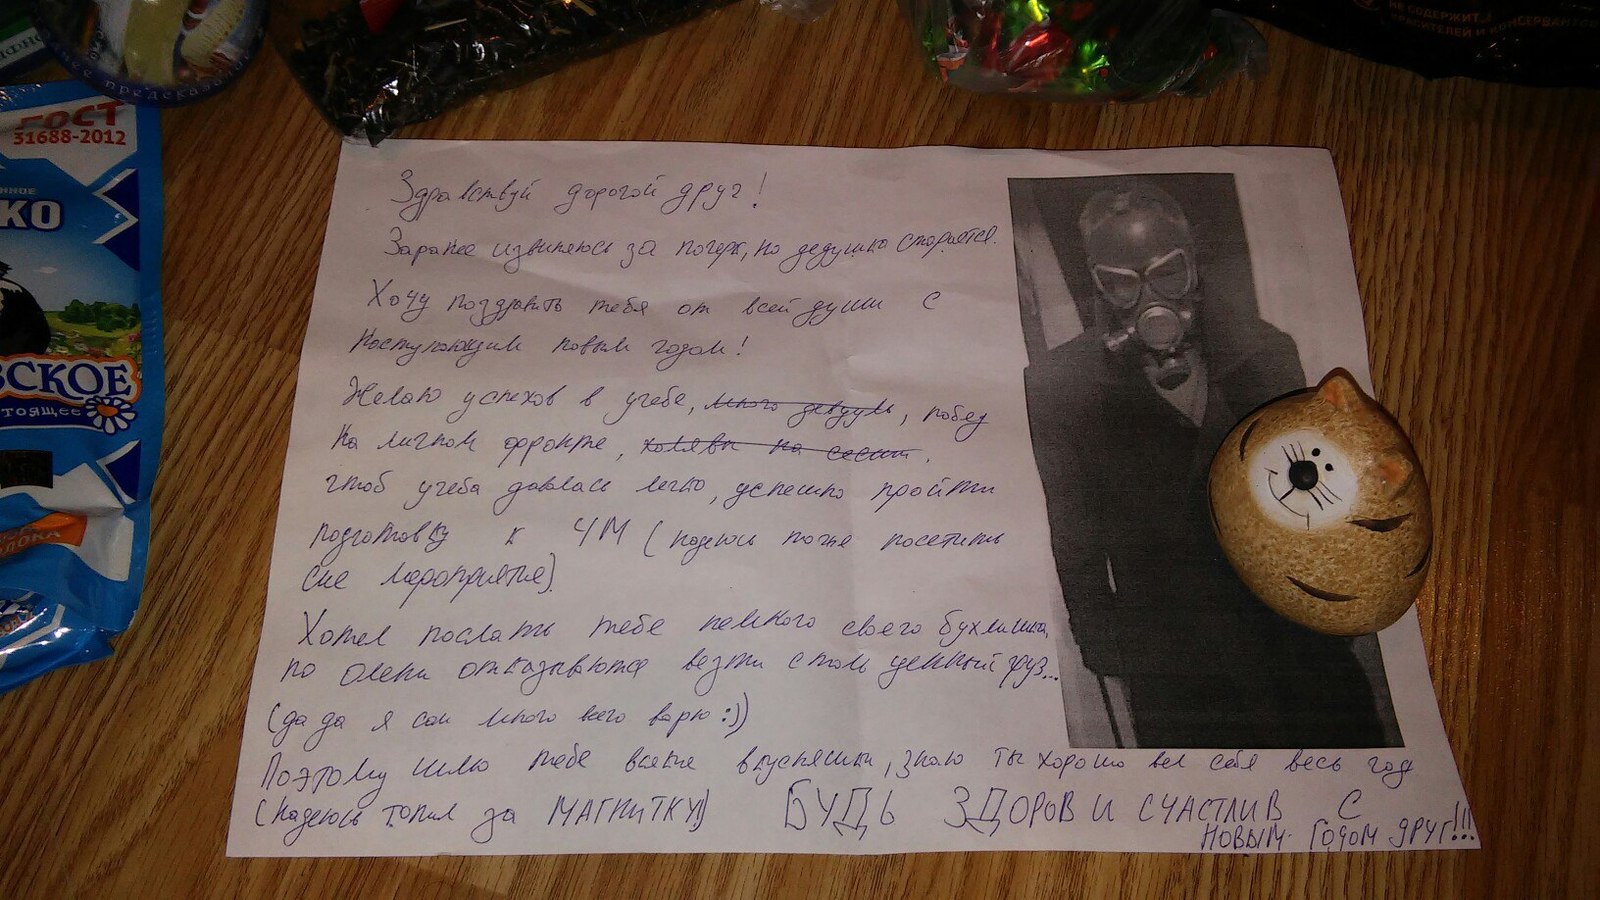 НЕ СОДЕРЖИТ
КРАСИТЕЛЕЙ И КОНСЕРВАНТОВ
предсказан
ГОСТ
31688-2012
КО
ВСКОЕ
СТОЯЩЕЕ
Здравствуй дорогой друг!
Заранее извиняюсь за почерк, но дедушка старается.
Хочу поздравить тебя от всей души с
Наступающим новым годом!
Желаю успехов в учебе, много девушек, побед
на личном фронте, халявы на сессии.
чтоб учеба давалась легко, успешно пройти
подготовку к ЧМ (надеюсь тоже посетить
сие мероприятие).
Хотел послать тебе немного своего бухлишка,
но олени отказываются везти столь ценный груз...
(да да я сам много чего варю :))
Поэтому шлю тебе всякие вкусняшки, знаю ты хорошо вел себя весь год
(надеюсь топил за МАГНИТКУ!) БУДЬ ЗДОРОВ И СЧАСТЛИВ С
НОВЫМ ГОДОМ ДРУГ!!!